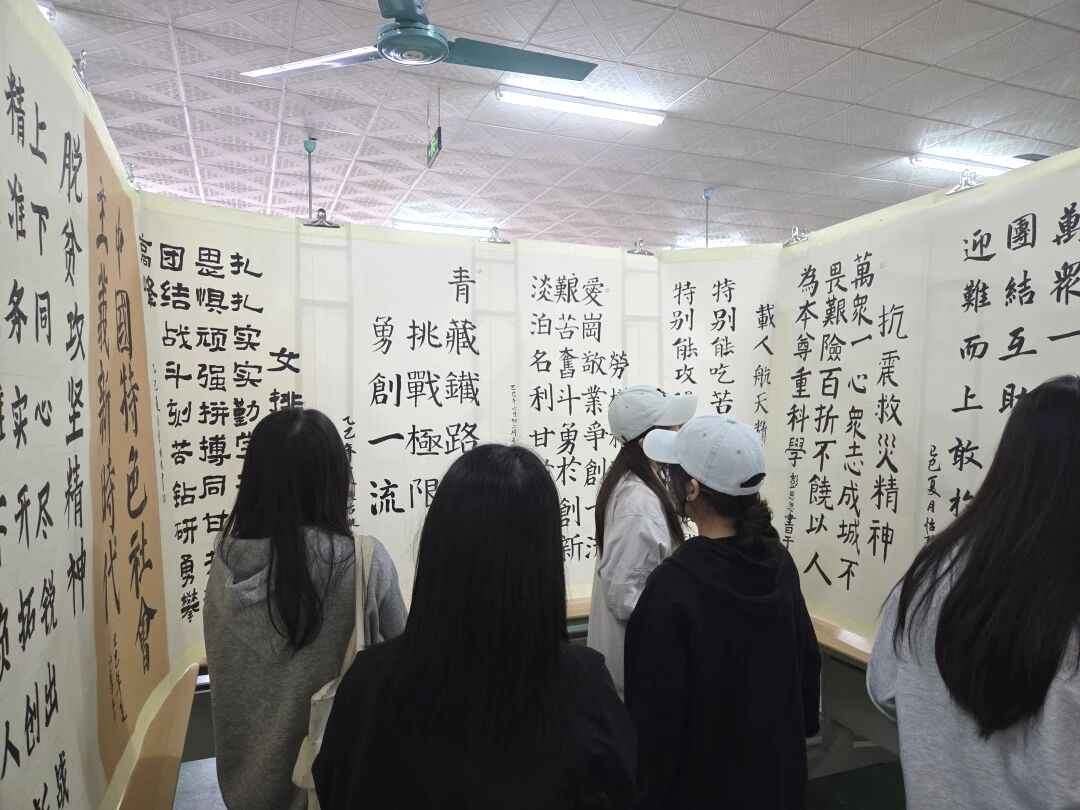 萬衆一
團結互助
迎難而上敢
抗震救災精神
萬衆一心衆志成城不
畏艱險百折不饒以人
為本尊重科學
載人航天精
特别能吃苦
特别能攻
愛崗敬業争創一
艱苦奮斗勇於創新
淡泊名利甘
青藏鐵路
挑戰極限
勇創一流
女排
扎扎实实勤
畏惧顽强拼搏同甘
团结战斗刻苦钻研勇攀
高峰
中國特色社會
主義新時代
脱贫攻坚精神
上下同心尽锐出战
精准务实开拓创